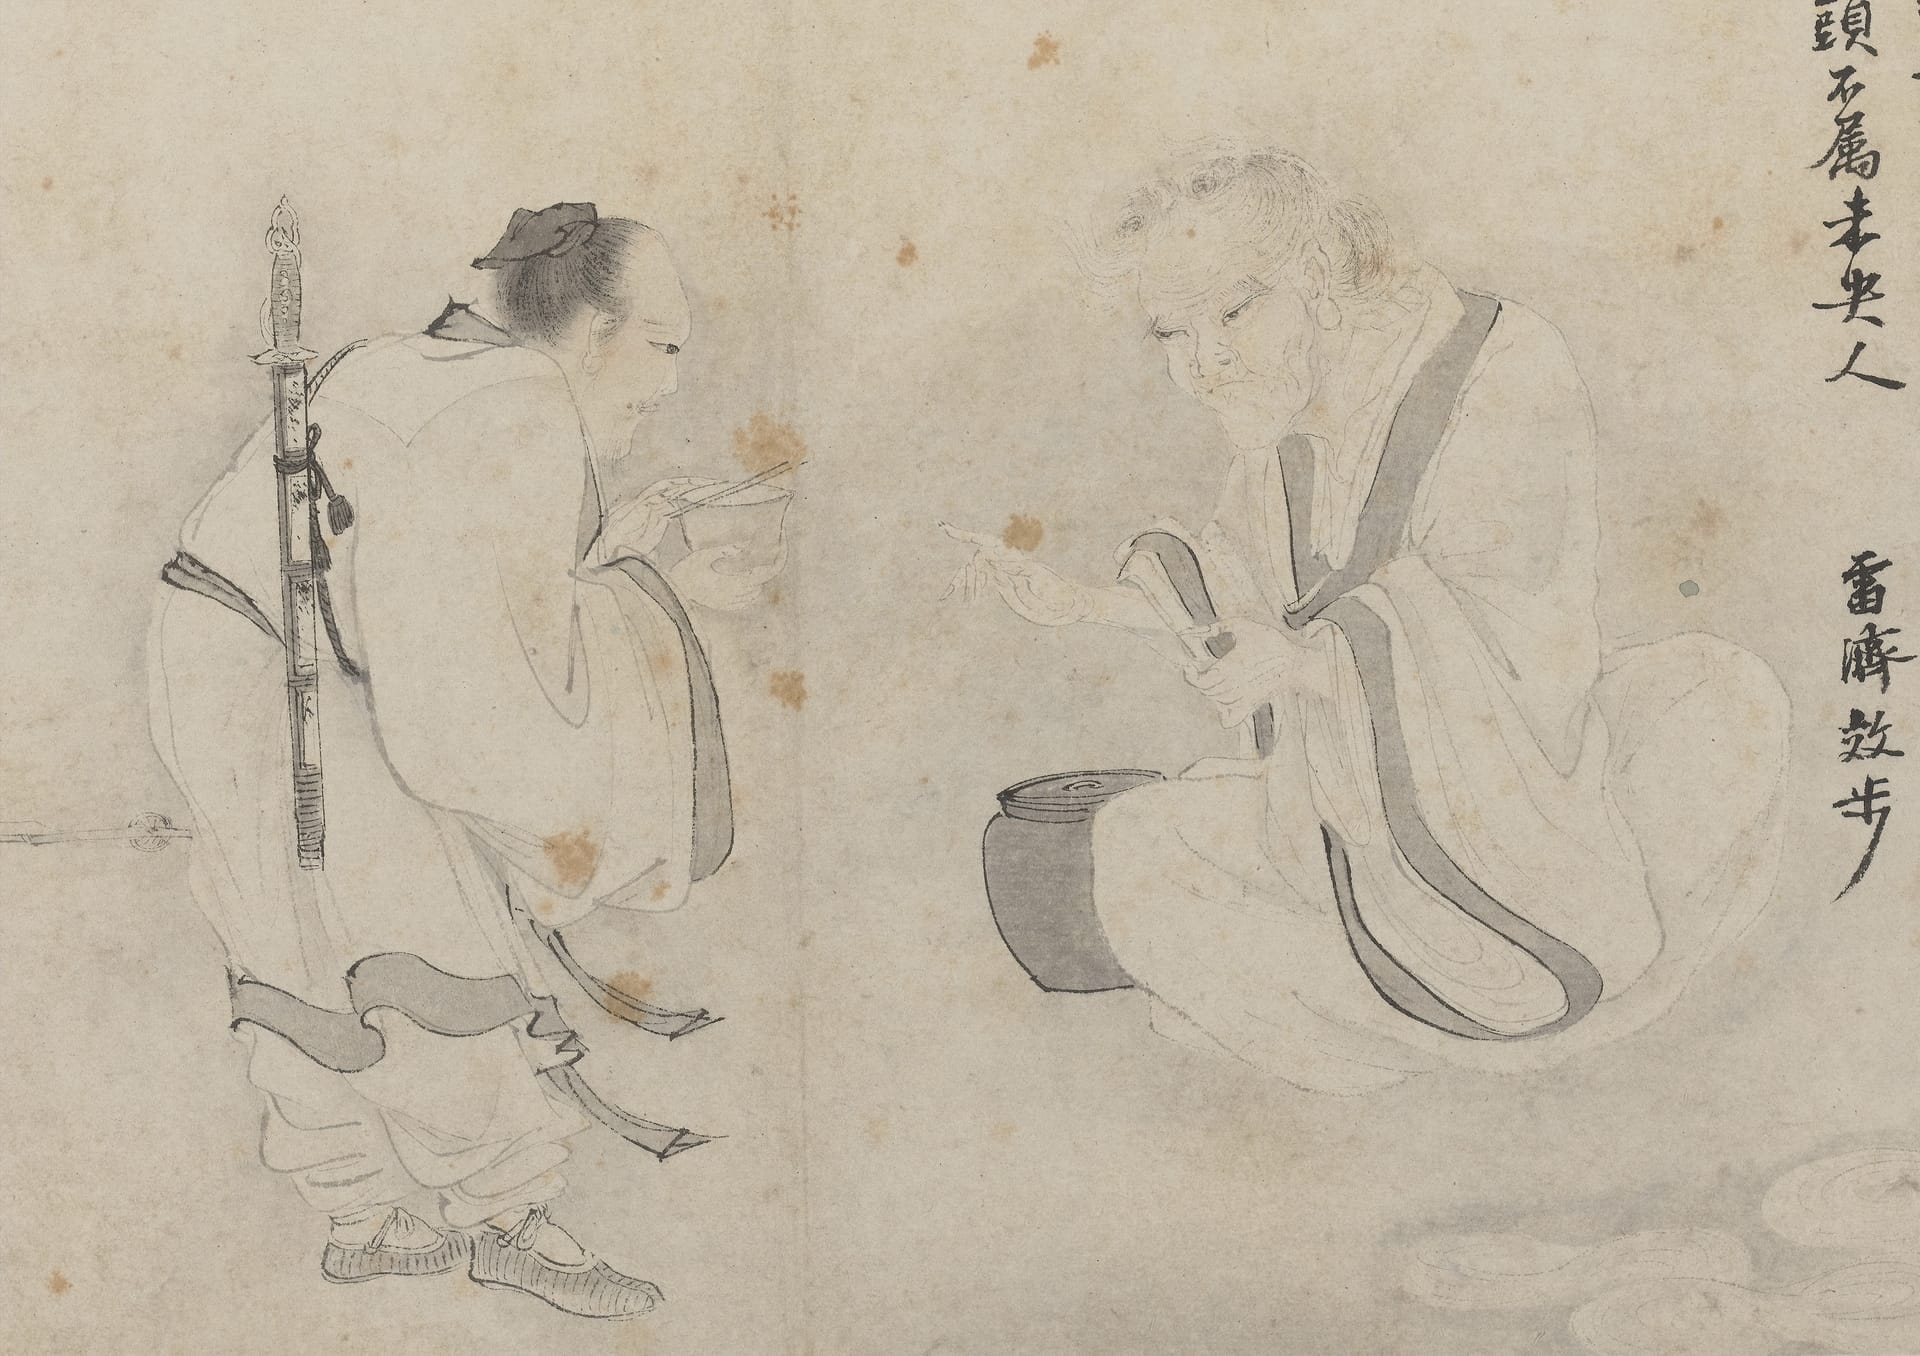 頭不属未央人 雷濟效步